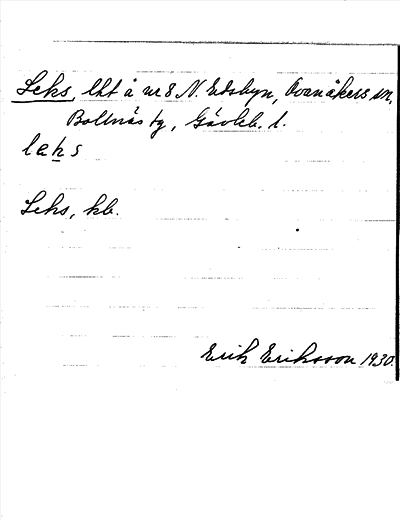 Leks, lht å nr 8 N. Edsbyn, Ovanåkers sn,
Bollnäs tg, Gävleb. l.
leks
Leks, kb.
Erik Eriksson 1930.